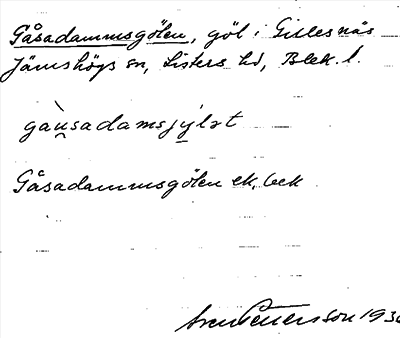 Gåsadammsgölen, göl i Gillesnäs
Jämshögs sn, Listers hd, Blek. l.
gaùsadamsjylət
Gåsadammsgölen ek. bek
Sven Pettersson 193